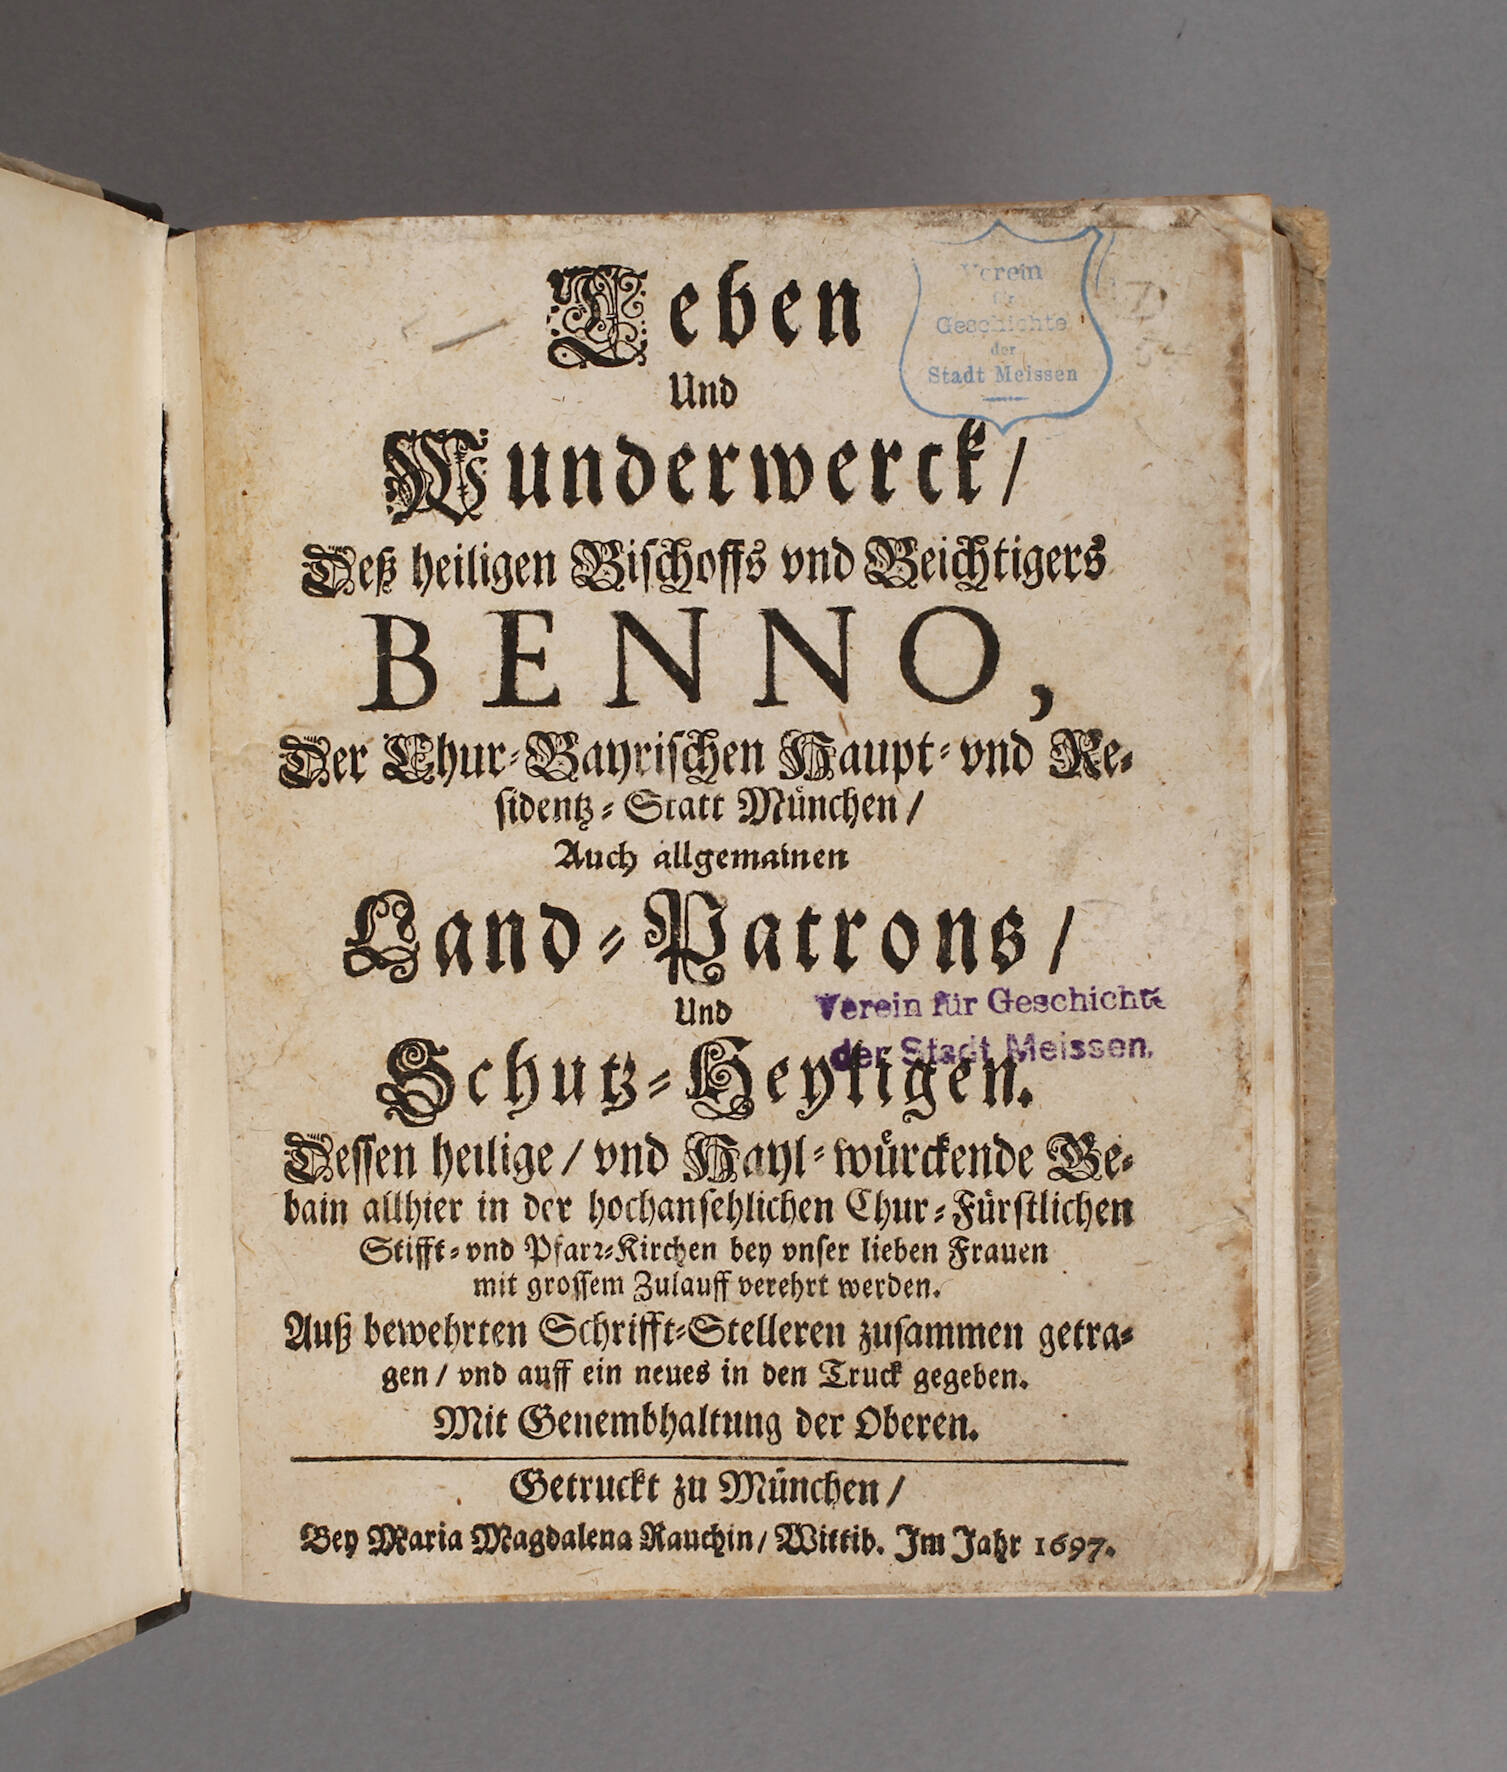 Verein
für
Geschichte
der
Stadt Meissen
Leben
Und
Wunderwerck/
Deß heiligen Bischoffs vnd Beichtigers
BENNO,
Der Chur-Bayrischen Haupt- vnd Re-
sidentz-Statt München/
Auch allgemainen
Land-Patrons/
Und
Verein für Geschichte
der Stadt Meissen.
Schutz-Heyligen.
Dessen heilige/ vnd Hayl-würckende Ge-
bain allhier in der hochansehlichen Chur-Fürstlichen
Stifft- vnd Pfarr-Kirchen bey vnser lieben Frauen
mit grossem Zulauff verehrt werden.
Auß bewehrten Schrifft-Stelleren zusammen getra-
gen/ vnd auff ein neues in den Truck gegeben.
Mit Genembhaltung der Oberen.
Getruckt zu München/
Bey Maria Magdalena Rauchin/ Wittib. Im Jahr 1697.